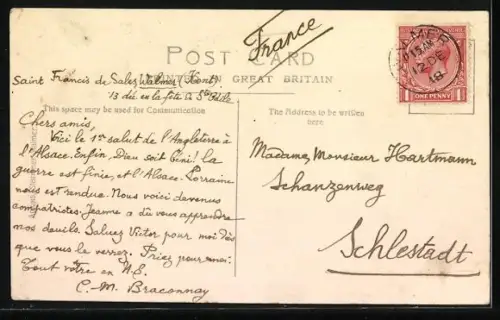 France
POST CARD
PRINTED IN GREAT BRITAIN
WALMER
12 DE
18
ONE PENNY
Saint Francis de Sales Walmer (Kent)
13 déc en la fête de Ste Odile
This space may be used for Communication
The Address to be written
here
Chers amis,
Voici le 1er salut de l'Angleterre à
l'Alsace. Enfin. Dieu soit béni! la
guerre est finie, et l'Alsace-Lorraine
nous est rendue. Nous voici devenus
compatriotes. Jeanne a dû vous apprendre
nos deuils. Saluez Victor pour moi dès
que vous le verrez. Priez pour moi.
Tout vôtre en N.S.
C.-M. Braconnay
Madame, Monsieur Hartmann
Schanzenweg
Schlestadt